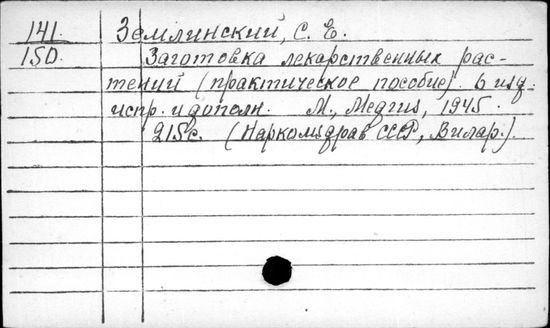 141. Землинский, С. Е.
150. Заготовка лекарственных рас-
тений (практическое пособие). 6 изд.
испр. и дополн. М., Медгиз, 1945.
215 с. (Наркомздрав СССР, Вилар.).